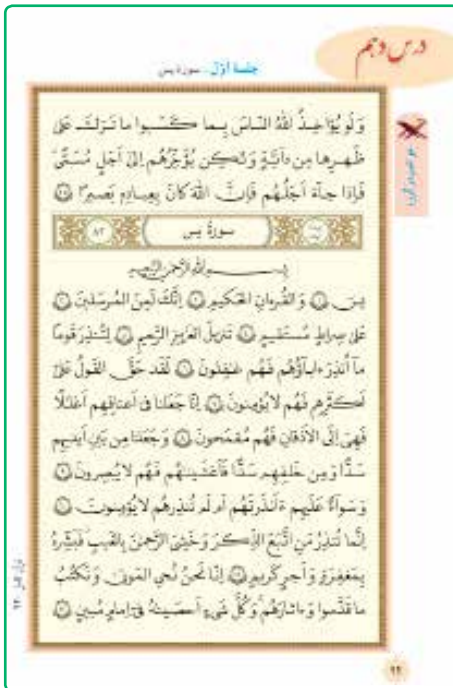 درس دهم
جلسه اوّل - سوره یس
وَلَوْ يُؤَاخِذُ اللَّهُ النَّاسَ بِمَا كَسَبُوا مَا تَرَكَ عَلَىٰ
ظَهْرِهَا مِن دَابَّةٍ وَلَٰكِن يُؤَخِّرُهُمْ إِلَىٰ أَجَلٍ مُّسَمًّى
فَإِذَا جَاءَ أَجَلُهُمْ فَإِنَّ اللَّهَ كَانَ بِعِبَادِهِ بَصِيرًا ۴۵
سورهٔ یس ۸۳
بِسْمِ اللَّهِ الرَّحْمَٰنِ الرَّحِيمِ
يس ۱ وَالْقُرْءَانِ الْحَكِيمِ ۲ إِنَّكَ لَمِنَ الْمُرْسَلِينَ ۳
عَلَىٰ صِرَاطٍ مُّسْتَقِيمٍ ۴ تَنزِيلَ الْعَزِيزِ الرَّحِيمِ ۵ لِتُنذِرَ قَوْمًا
مَا أُنذِرَ ءَابَاؤُهُمْ فَهُمْ غَافِلُونَ ۶ لَقَدْ حَقَّ الْقَوْلُ عَلَىٰ
أَكْثَرِهِمْ فَهُمْ لَا يُؤْمِنُونَ ۷ إِنَّا جَعَلْنَا فِي أَعْنَاقِهِمْ أَغْلَالًا
فَهِيَ إِلَى الْأَذْقَانِ فَهُم مُّقْمَحُونَ ۸ وَجَعَلْنَا مِن بَيْنِ أَيْدِيهِمْ
سَدًّا وَمِنْ خَلْفِهِمْ سَدًّا فَأَغْشَيْنَاهُمْ فَهُمْ لَا يُبْصِرُونَ ۹
وَسَوَاءٌ عَلَيْهِمْ ءَأَنذَرْتَهُمْ أَمْ لَمْ تُنذِرْهُمْ لَا يُؤْمِنُونَ ۱۰
إِنَّمَا تُنذِرُ مَنِ اتَّبَعَ الذِّكْرَ وَخَشِيَ الرَّحْمَٰنَ بِالْغَيْبِ فَبَشِّرْهُ
بِمَغْفِرَةٍ وَأَجْرٍ كَرِيمٍ ۱۱ إِنَّا نَحْنُ نُحْيِ الْمَوْتَىٰ وَنَكْتُبُ
مَا قَدَّمُوا وَءَاثَارَهُمْ وَكُلَّ شَيْءٍ أَحْصَيْنَاهُ فِي إِمَامٍ مُّبِينٍ ۱۲